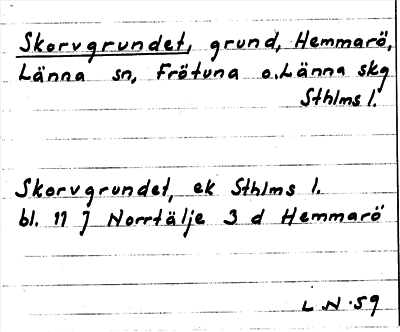 Skorvgrundet, grund, Hemmarö,
Länna sn, Frötuna o. Länna skg
Sthlms l.
Skorvgrundet, ek Sthlms l.
bl. 11 J Norrtälje 3 d Hemmarö
L N. 59